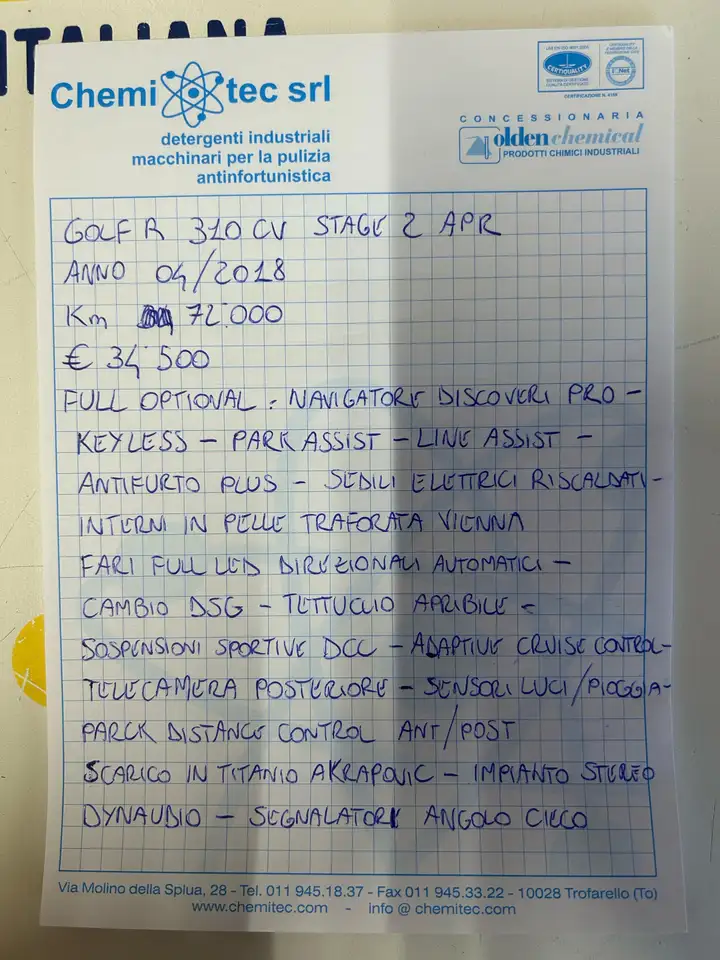 ITALIANA
Chemi tec srl
detergenti industriali
macchinari per la pulizia
antinfortunistica
CERTIQUALITY
CONCESSIONARIA
olden chemical
PRODOTTI CHIMICI INDUSTRIALI
GOLF R 310 CV STAGE 2 APR
ANNO 04/2018
Km 72.000
€ 34 500
FULL OPTIONAL : NAVIGATORE DISCOVERI PRO -
KEYLESS - PARK ASSIST - LINE ASSIST -
ANTIFURTO PLUS - SEDILI ELETTRICI RISCALDATI -
INTERNI IN PELLE TRAFORATA VIENNA
FARI FULL LED DIREZIONALI AUTOMATICI -
CAMBIO DSG - TETTUCCIO APRIBILE -
SOSPENSIONI SPORTIVE DCC - ADAPTIVE CRUISE CONTROL -
TELECAMERA POSTERIORE - SENSORI LUCI/PIOGGIA -
PARCK DISTANCE CONTROL ANT/POST
SCARICO IN TITANIO AKRAPOVIC - IMPIANTO STEREO
DYNAUDIO - SEGNALATORI ANGOLO CIECO
Via Molino della Splua, 28 - Tel. 011 945.18.37 - Fax 011 945.33.22 - 10028 Trofarello (To)
www.chemitec.com - info @ chemitec.com